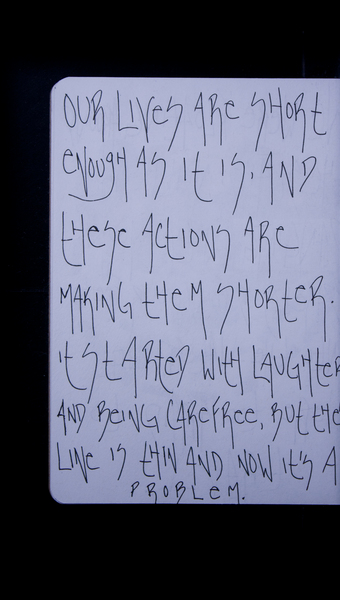 OUR LIVES ARE SHORT
ENOUGH AS IT IS, AND
THESE ACTIONS ARE
MAKING THEM SHORTER.
IT STARTED WITH LAUGHTER
AND BEING CAREFREE, BUT THE
LINE IS THIN AND NOW IT'S A
PROBLEM.